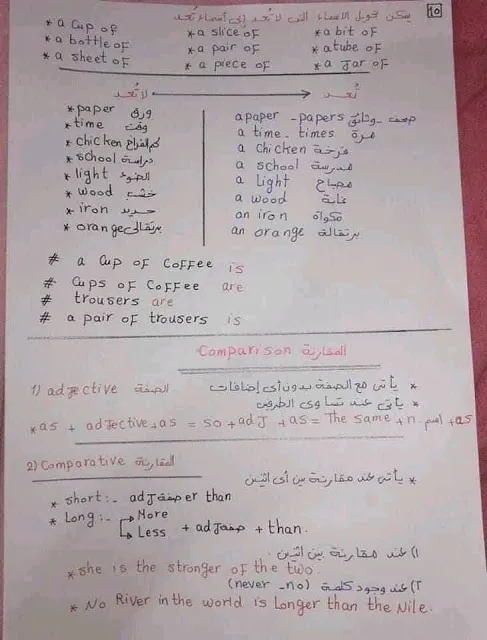 10
يمكن تحويل الأسماء التى لا تُعد إلى أسماء تُعد
* a cup of * a slice of * a bit of
* a bottle of * a pair of * a tube of
* a sheet of * a piece of * a jar of
لا تُعد تُعد
* paper ورق a paper - papers صحف - وثائق
* time وقت a time - times مرة
* chicken لحم الفراخ a chicken فرخة
* school دراسة a school مدرسة
* light الضوء a light مصباح
* wood خشب a wood غابة
* iron حديد an iron مكواة
* orange برتقالى an orange برتقالة
# a cup of coffee is
# cups of coffee are
# trousers are
# a pair of trousers is
Comparison المقارنة
1) adjective الصفة * يأتى مع الصفة بدون أى إضافات
* يأتى عند تساوى الطرفين
* as + adjective + as = so + adj + as = The same + n. اسم + as
2) Comparative المقارنة
* يأتى عند مقارنة بين أى اثنين
* short :- adj صفة er than
* Long :- More
Less + adj صفة + than.
1) عند مقارنة بين اثنين.
* she is the stronger of the two.
2) عند وجود كلمة (never - no)
* No River in the world is Longer than the Nile.